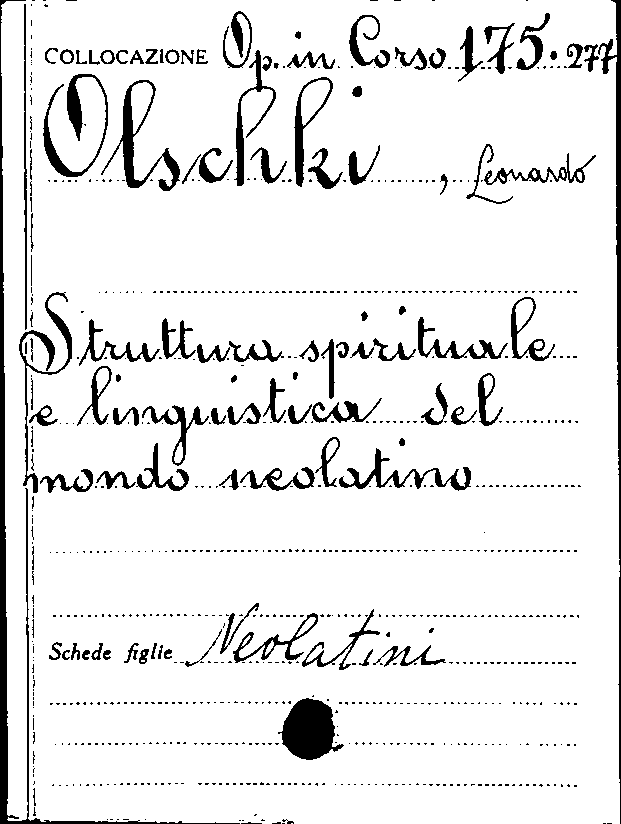 COLLOCAZIONE Op. in Corso 175. 277
Olschki, Leonardo
Struttura spirituale
e linguistica del
mondo neolatino
Schede figlie Neolatini